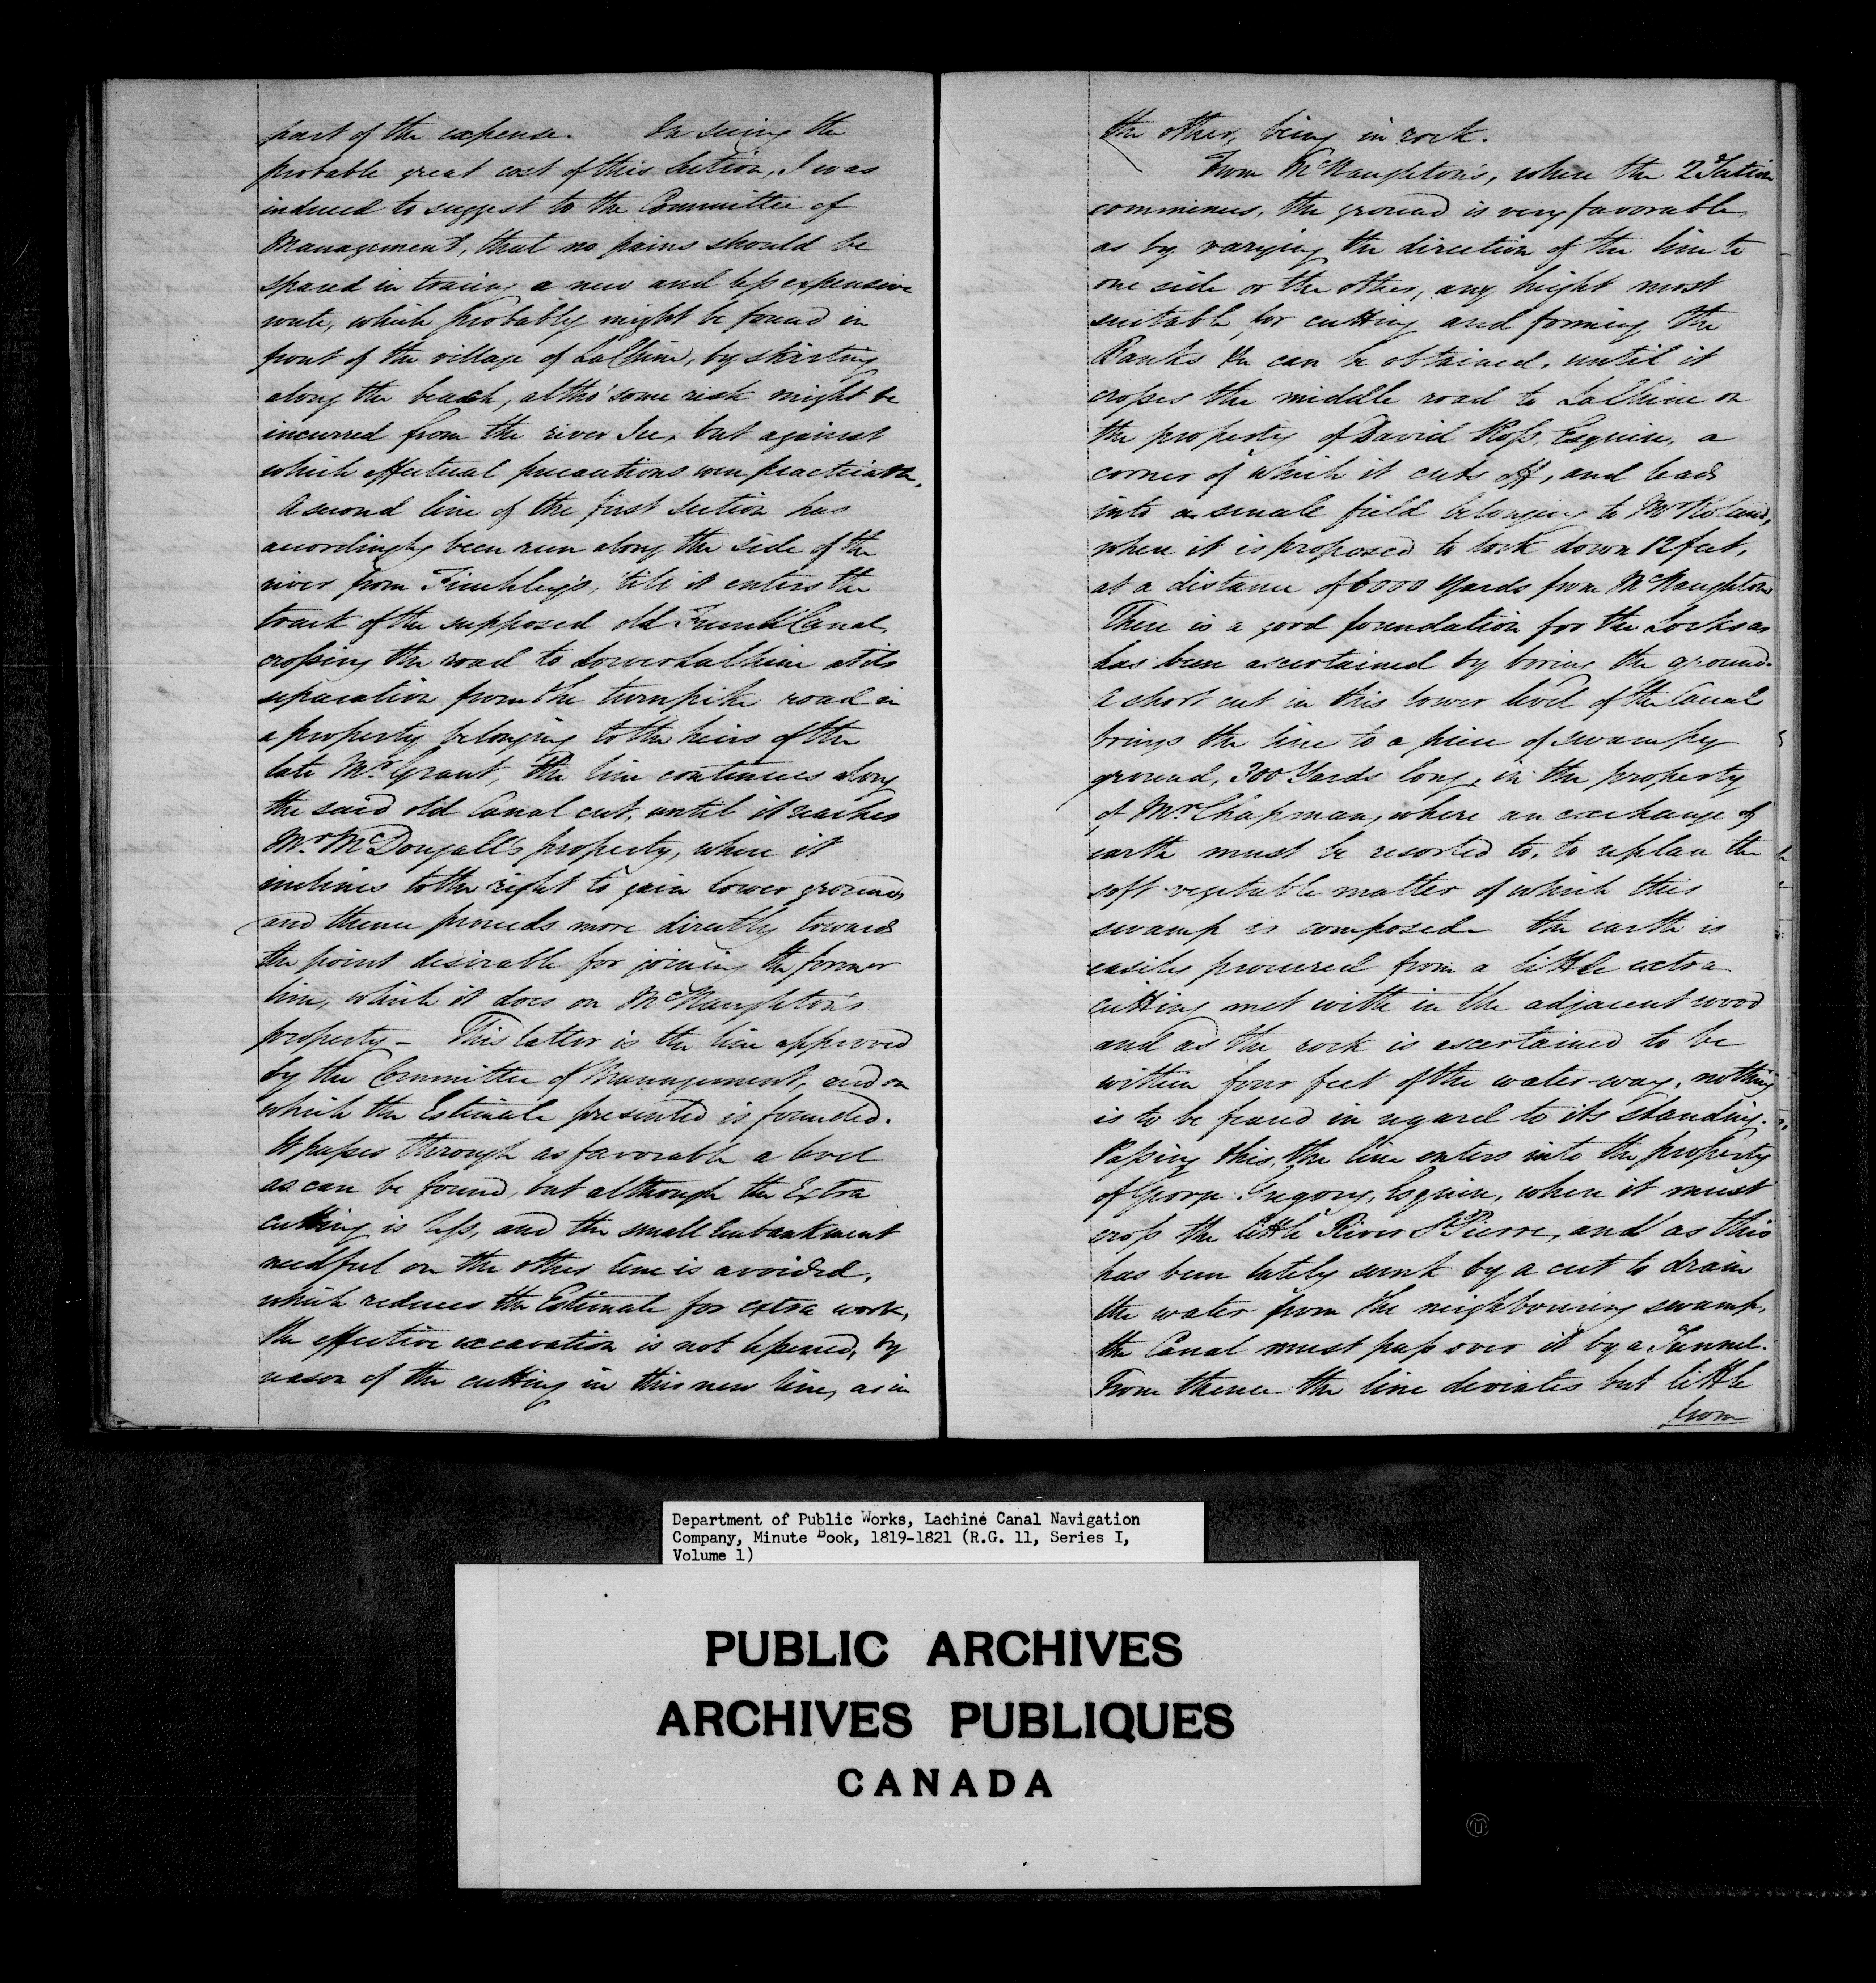 part of the expense. On seeing the
probable great cost of this Section, I was
induced to suggest to the Committee of
Management, that no pains should be
spared in tracing a new and less expensive
route, which probably might be found in
front of the village of LaChine, by skirting
along the beach, altho' some risk might be
incurred from the river Ice, but against
which effectual precautions were practicable.
A second line of the first Section has
accordingly been run along the side of the
river from Finchley's, 'till it enters the
track of the supposed old French Canal,
crossing the road to Lower LaChine at its
separation from the turnpike road in
a property belonging to the heirs of the
late Mr. Grant, The line continues along
the said old Canal cut, until it reaches
Mr. McDougall's property, where it
inclines to the right to gain lower ground,
and thence proceeds more directly towards
the point desirable for joining the former
line, which it does on McNaughton's
property – This latter is the line approved
by the Committee of Management, and on
which the Estimate presented is founded.
It passes through as favorable a level
as can be found, but although the Extra
cutting is less, and the small Embankment
needful on the other line is avoided,
which reduces the Estimate for extra work,
the effective excavation is not lessened, by
reason of the cutting in this new line, as in
the other, being in rock.
From McNaughton's, where the 2d Section
commences, the ground is very favorable
as by varying the direction of the line to
one side or the other, any height most
suitable for cutting and forming the
Banks &c can be obtained, until it
crosses the middle road to LaChine on
the property of David Ross, Esquire, a
corner of which it cuts off, and leads
into a small field belonging to Mr
where it is proposed to lock down 12 feet,
at a distance of 6000 Yards from McNaughtons
There is a good foundation for the Locks as
has been ascertained by boring the ground.
A short cut in this lower level of the Canal
brings the line to a piece of swampy
ground, 300 Yards long, in the property
of Mr Chapman, where an exchange of
earth must be resorted to, to replace the
soft vegetable matter of which this
swamp is composed. the earth is
easily procured from a little extra
cutting met with in the adjacent wood
and as the rock is ascertained to be
within four feet of the water-way, nothing
is to be feared in regard to its standing.
Passing this, the line enters into the property
of George Gregory, Esquire, where it must
cross the little River St Pierre, and as this
has been lately sunk by a cut to drain
the water from the neighbouring swamp,
the Canal must pass over it by a Tunnel.
From thence the line deviates but little
from
Department of Public Works, Lachine Canal Navigation
Company, Minute Book, 1819-1821 (R.G. 11, Series I,
Volume 1)
PUBLIC ARCHIVES
ARCHIVES PUBLIQUES
CANADA